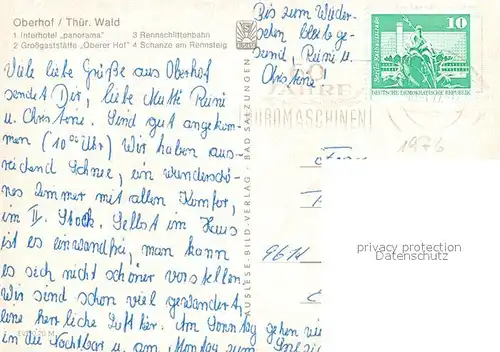 Oberhof / Thür. Wald
1 Interhotel „panorama" 3 Rennschlittenbahn
2 Großgaststätte „Oberer Hof" 4 Schanze am Rennsteig
Viele liebe Grüße aus Oberhof
sendet Dir, liebe Mutti Reini
u. Christine. Sind gut angekom-
men (10 Uhr) Wir haben aus-
reichend Schnee, ein wunderschö-
nes Zimmer mit allen Komfor,
im II. Stock. Selbst im Haus
ist es einwandfrei, man kann
es sich nicht schöner vorstellen
Wir sind schon viel gewandert,
eine herrliche Luft hier. Am Sonntag gehen wir
in die Nachtbar u. am Montag zum
EV 10 20 M
AUSLESE-BILD-VERLAG · BAD SALZUNGEN
Bis zum Wieder-
sehen bleib ge-
sund, Reini u.
Christine!
10
DEUTSCHE DEMOKRATISCHE REPUBLIK
JAHRE
BÜROMASCHINEN
1976
privacy protection
Datenschutz